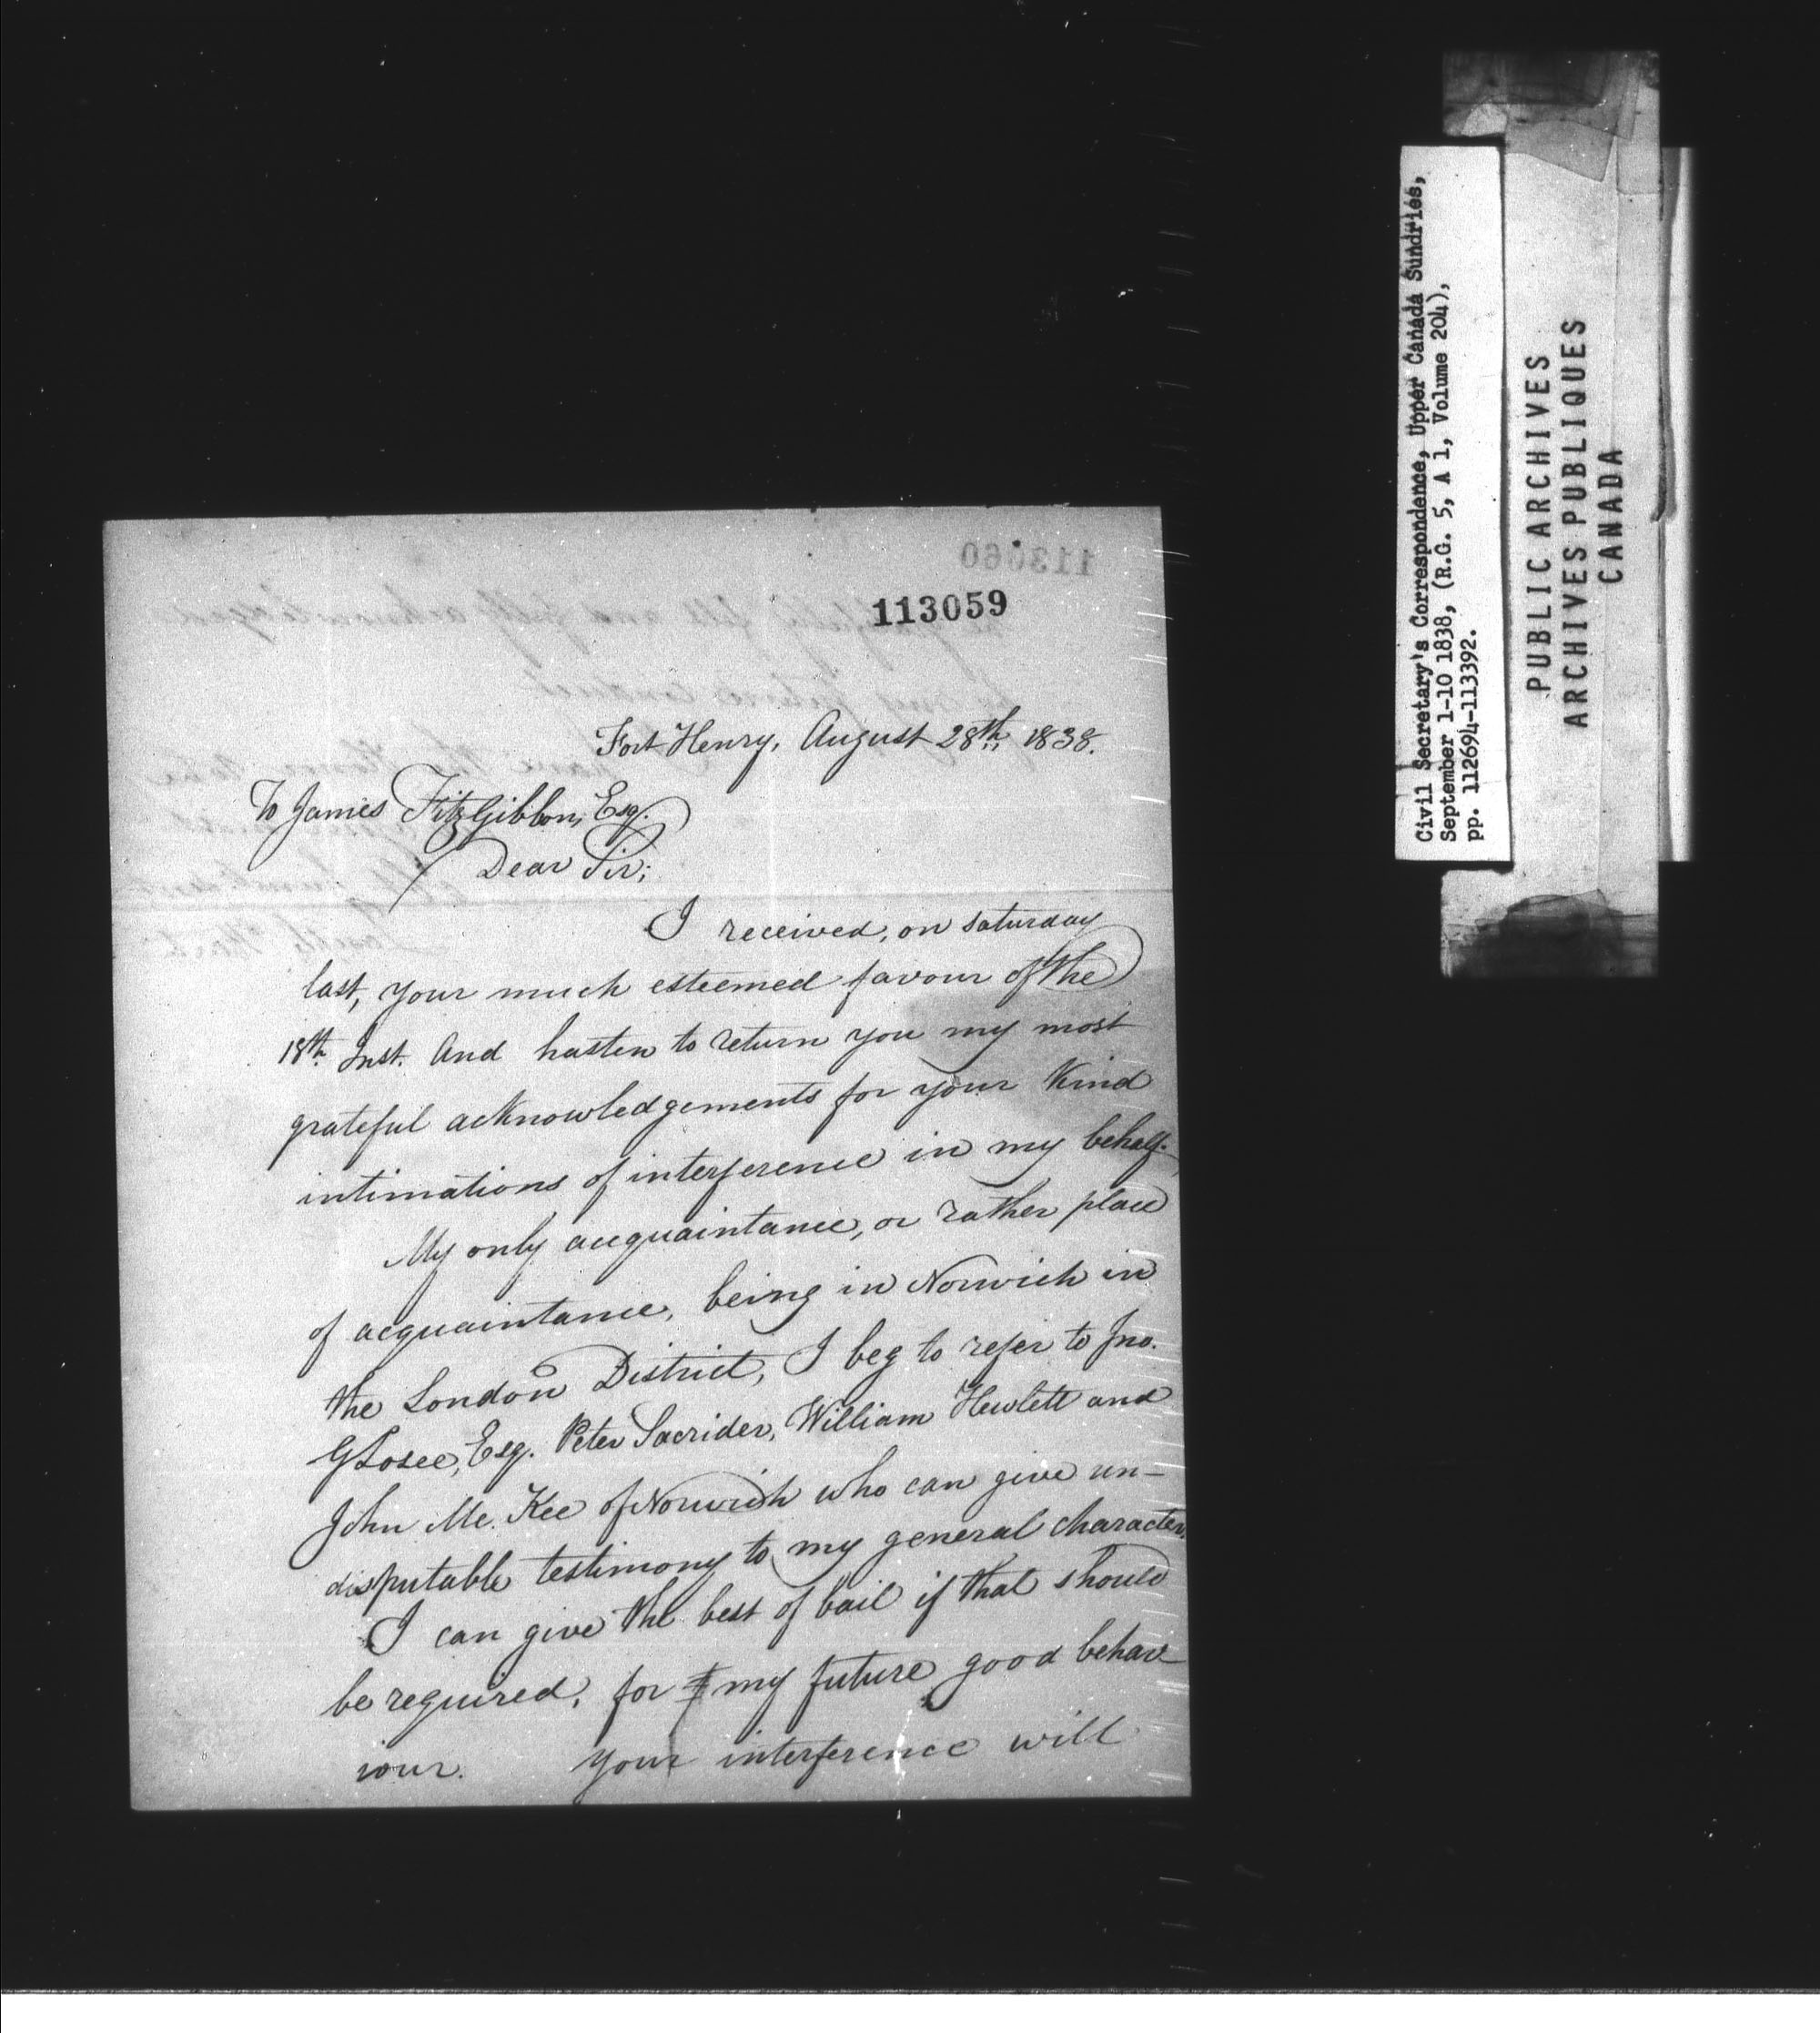 113060
113059
Fort Henry, August 28th, 1838.
To James FitzGibbon, Esq.
Dear Sir;
I received, on saturday
last, your much esteemed favour of the
18th Inst. And hasten to return you my most
grateful acknowledgements for your kind
intimations of interference in my behalf.
My only acquaintance, or rather place
of acquaintance, being in Norwich in
the London District, I beg to refer to Jno.
G Losee, Esq. Peter Sacrider, William Hewlett and
John Mc. Kee of Norwich who can give un-
disputable testimony to my general character.
I can give the best of bail if that should
be required, for my future good behav
iour. Your interference will
Civil Secretary's Correspondence, Upper Canada Sundries,
September 1-10 1838, (R.G. 5, A 1, Volume 204),
pp. 112694-113392.
PUBLIC ARCHIVES
ARCHIVES PUBLIQUES
CANADA